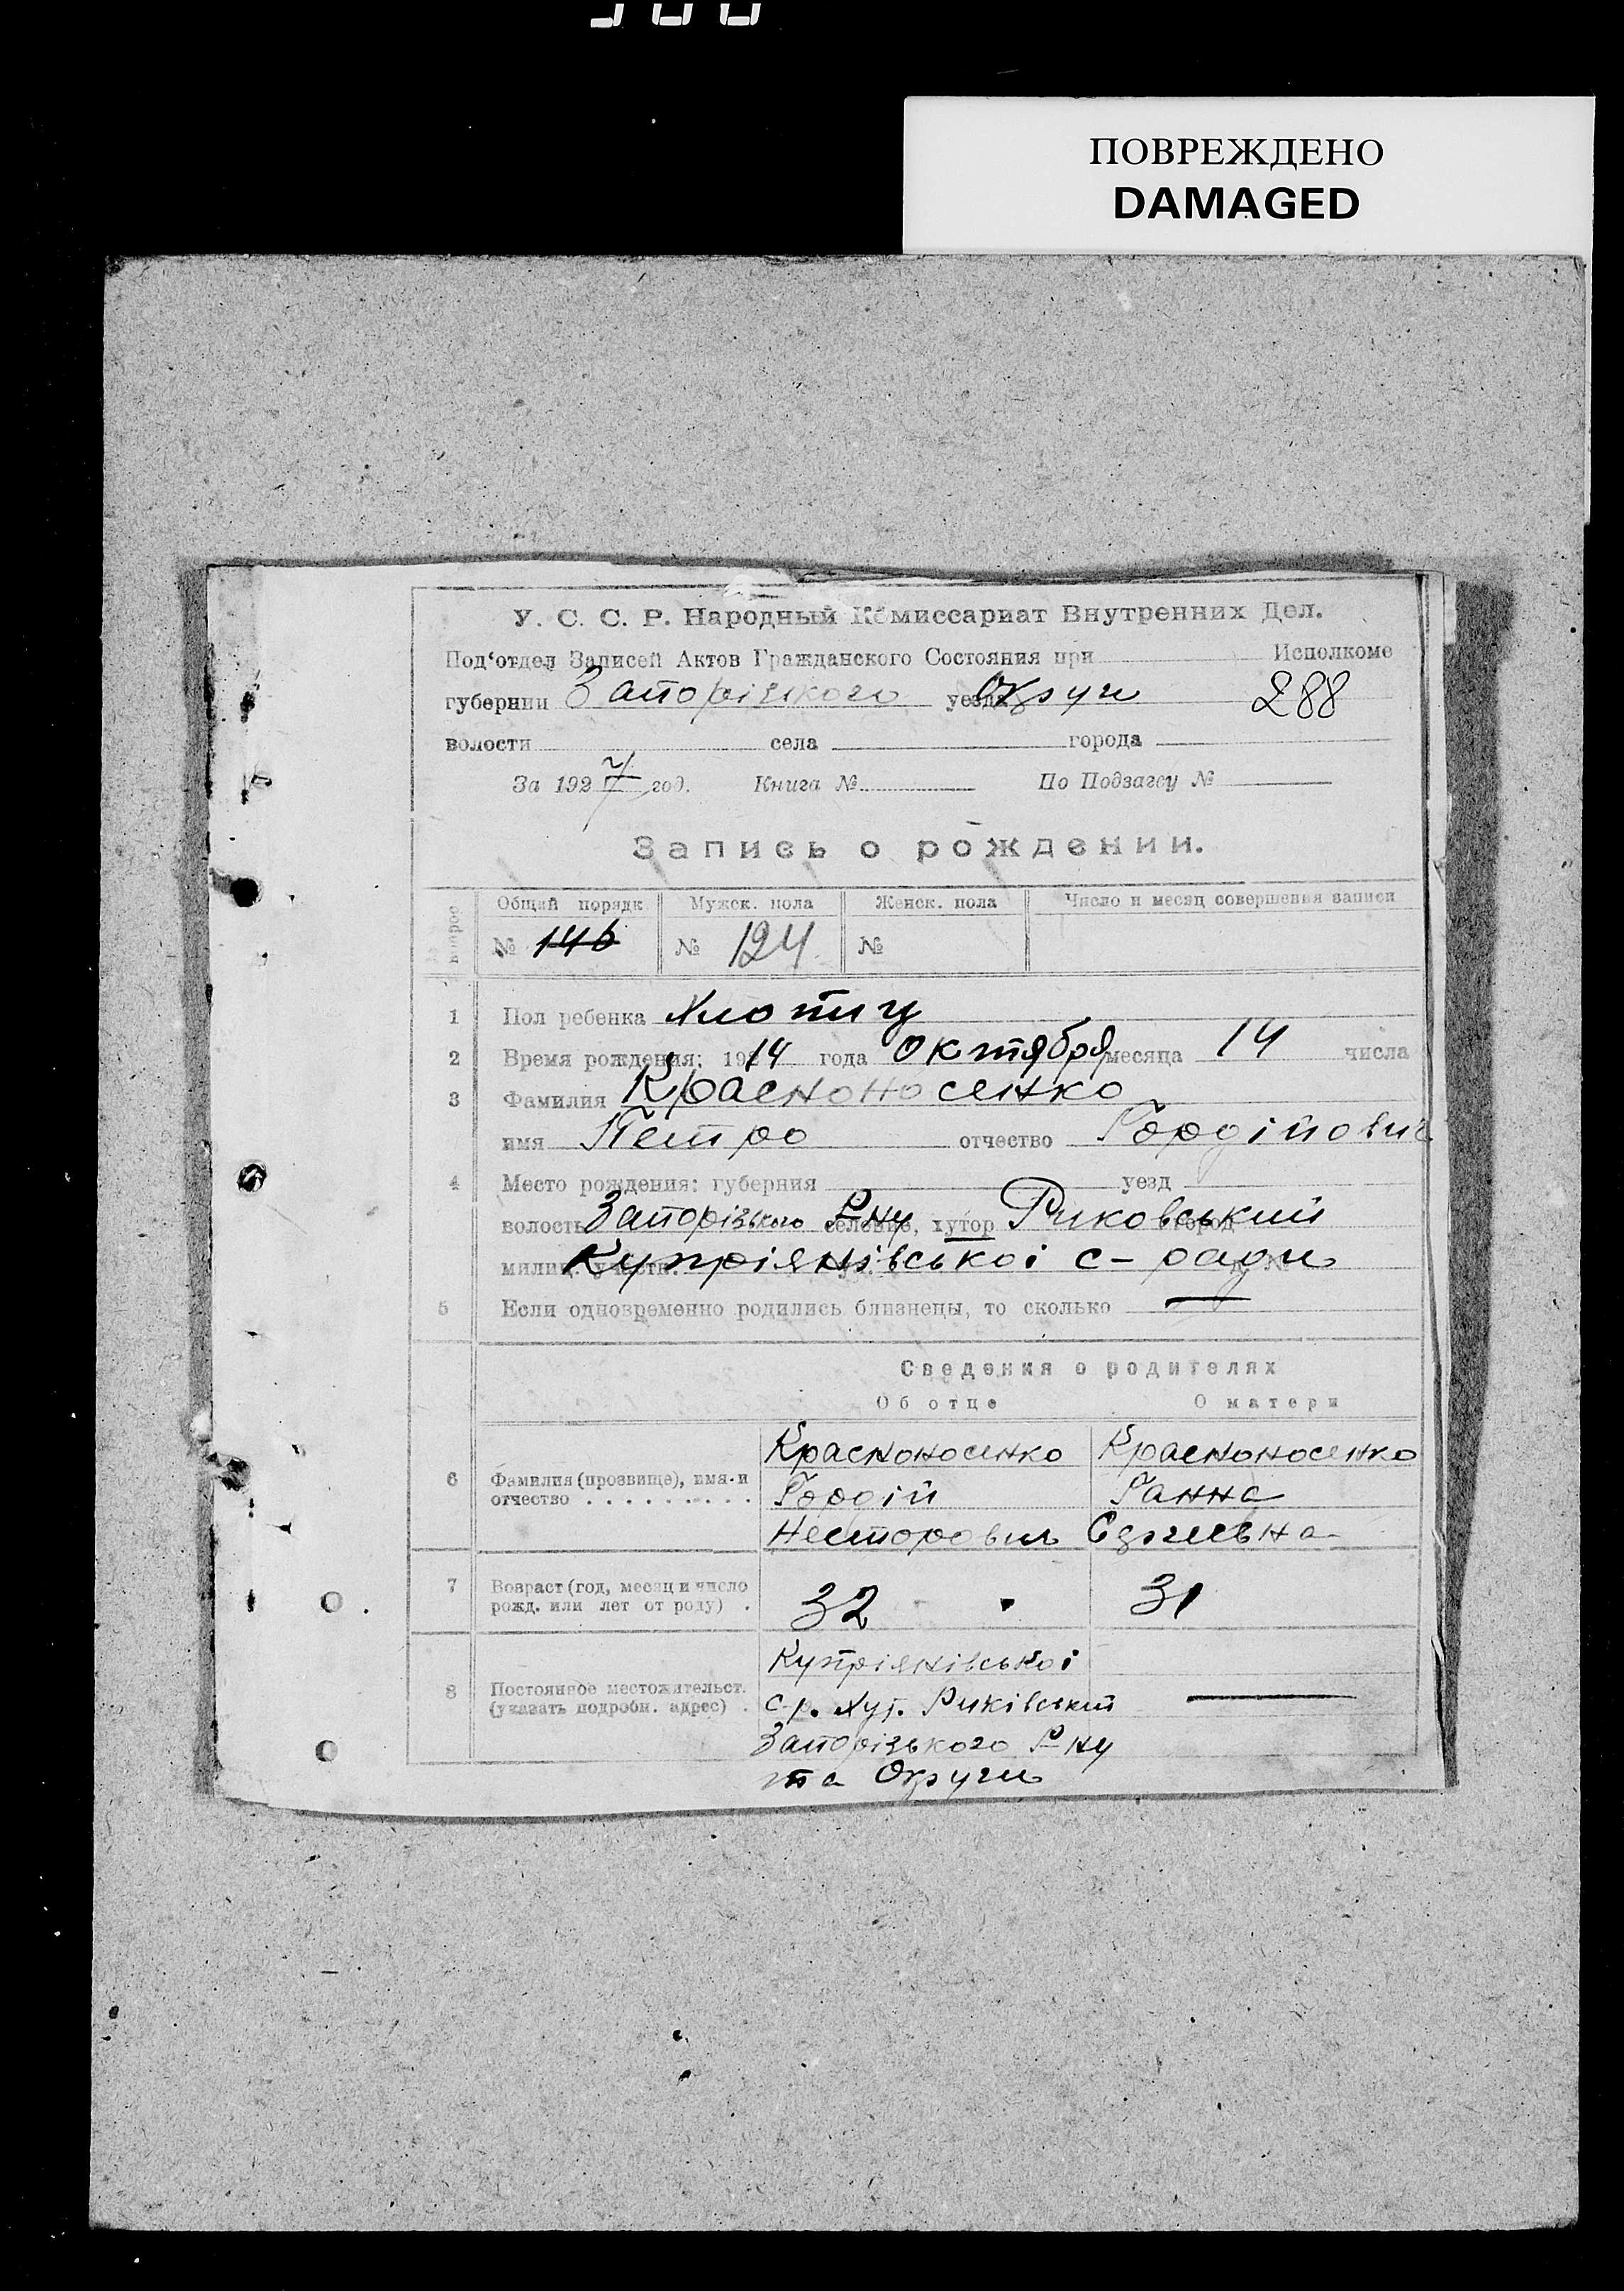 ПОВРЕЖДЕНО
DAMAGED
У. С. С. Р. Народный Комиссариат Внутренних Дел.
Под'отдел Записей Актов Гражданского Состояния при Исполкоме
губернии Запорізького уезда Округи 288
волости села города
За 1927 год. Книга № По Подзагсу №
Запись о рождении.
Общий порядк Мужск. пола Женск. пола Число и месяц совершения записи
№ 146 № 124 №
1 Пол ребенка Хлопиц
2 Время рождения: 1914 года Октября месяца 14 числа
3 Фамилия Красноносенко
имя Петро отчество Гордійович
4 Место рождения: губерния уезд
волость Запорізького Р-ну селение, хутор Риковський город
милиц. участк. Купріянівської с-ради №
5 Если одновременно родились близнецы, то сколько —
Сведения о родителях
Об отце О матери
6 Фамилия (прозвище), имя и отчество Красноносенко Красноносенко
Гордій Ганна
Несторович Сергиевна
7 Возраст (год, месяц и число рожд. или лет от роду) 32 31
8 Постоянное местожительст. (указать подробн. адрес) Купріянівської —
с-р. Хут. Риківський
Запорізького Р-ну
та Округи